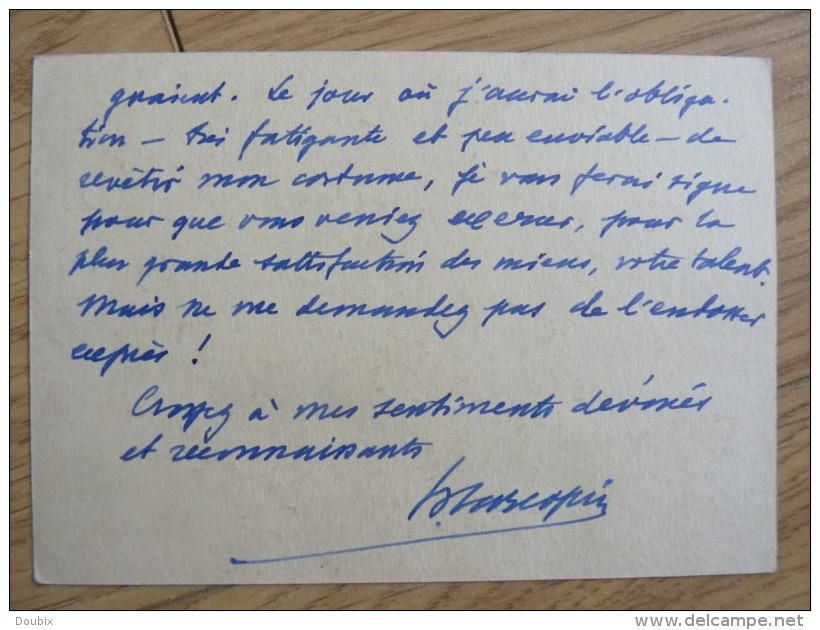 graient. Le jour où j'aurai l'obliga-
tion – très fatigante et peu enviable – de
revêtir mon costume, je vous ferai signe
pour que vous veniez exercer, pour la
plus grande satisfaction des miens, votre talent.
Mais ne me demandez pas de l'endosser
exprès !
Croyez à mes sentiments dévoués
et reconnaissants
Doubix
www.delcampe.net